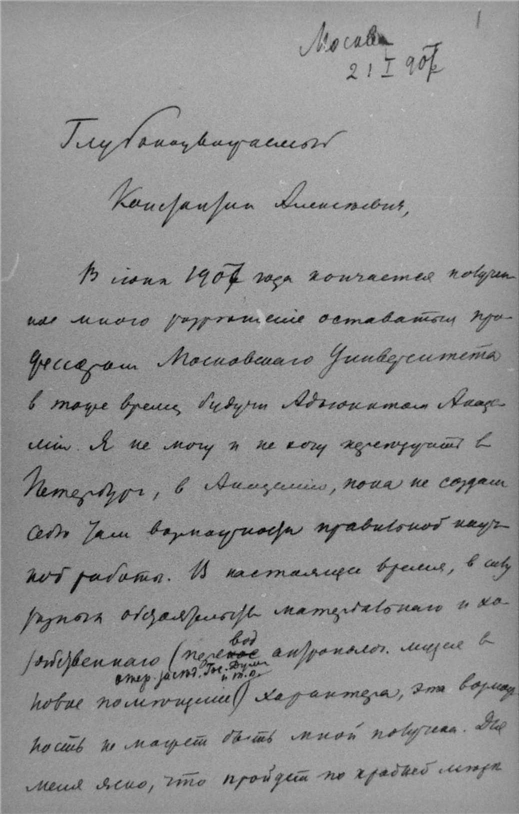 1
Москва
21 I 907
Глубокоуважаемый
Константин Алексеевич,
В июне 1907 года кончается получен
ное мною разрешение оставаться про
фессором Московскаго Университета
в тоже время будучи Адъюнктом Акаде
мiи. Я не могу и не хочу переезжать в
Петербург, в Академiю, пока не создам
себе там возможности правильной науч
ной работы. В настоящее время, в силу
разных обстоятельств материальнаго и хо
зяйственнаго (перевод минерал. музея в
Гос. Думы
и т. д.
новое помещенiе) характера, эта возмож
ность не может быть мной получена. Для
меня ясно, что пройдет по крайней мере